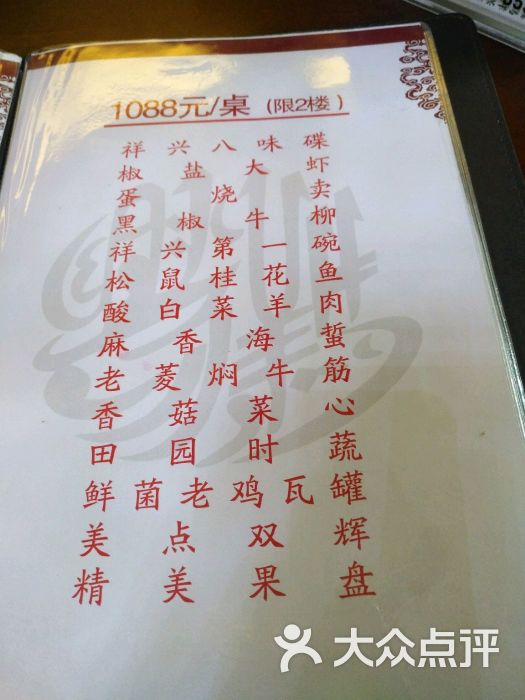 1088元/桌（限2楼）
祥兴八味碟
椒盐大虾
蛋烧卖
黑椒牛柳
祥兴第一碗
松鼠桂花鱼
酸白菜羊肉
麻香海蜇
老菱焖牛筋
香菇菜心
田园时蔬
鲜菌老鸡瓦罐
美点双辉
精美果盘
大众点评